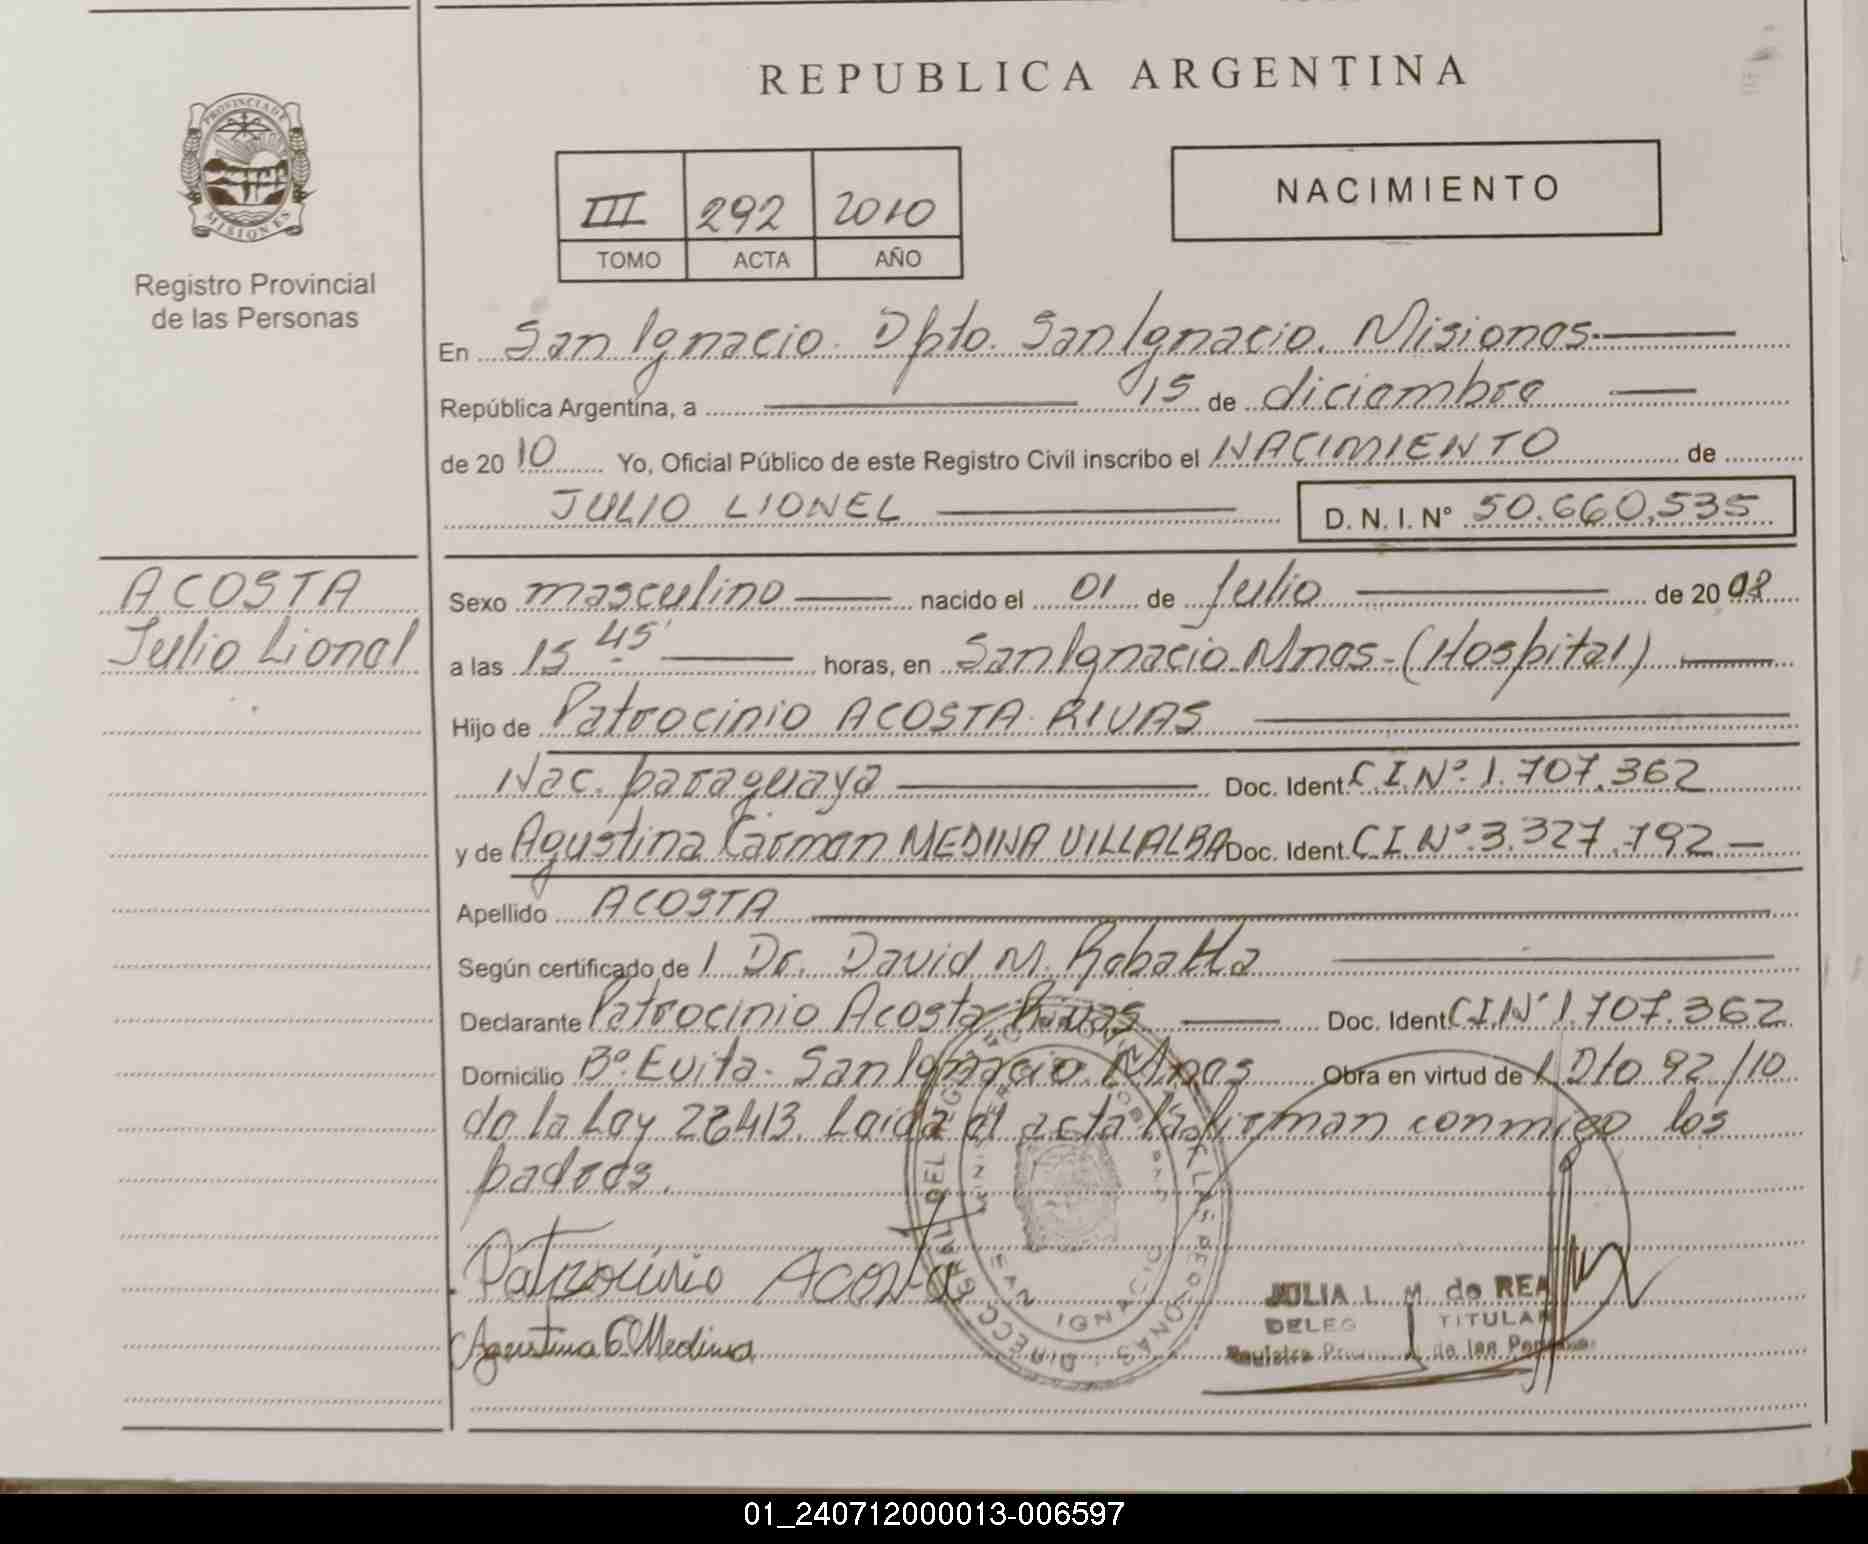 REPUBLICA ARGENTINA
PROVINCIA DE
MISIONES
Registro Provincial
de las Personas
III 292 2010
TOMO ACTA AÑO
NACIMIENTO
En San Ignacio. Dpto. San Ignacio. Misiones.
República Argentina, a 15 de diciembre
de 2010 Yo, Oficial Público de este Registro Civil inscribo el NACIMIENTO de
JULIO LIONEL D. N. I. Nº 50.660.535
ACOSTA
Julio Lionel
Sexo masculino nacido el 01 de Julio de 2008
a las 15 45' horas, en San Ignacio Mnes-(Hospital)
Hijo de Patrocinio ACOSTA RIVAS
Nac. paraguaya Doc. Ident. C.I.Nº.1.707.362
y de Agustina Carmen MEDINA VILLALBA Doc. Ident. C.I.Nº.3.327.792
Apellido ACOSTA
Según certificado de l Dr. David M.
Declarante Patrocinio Acosta Rivas Doc. Ident. C.I.Nº 1.707.362
Domicilio Bº. Evita. San Ignacio. Mnes Obra en virtud de l Dto 92/10
de la Ley 26413. Leida el acta la firman conmigo los
padres.
Patrocinio Acosta
Agustina C Medina
DIRECCION GRAL DEL REGISTRO
DE LAS PERSONAS
SAN IGNACIO
JULIA L. M. de REA
TITULAR
Registro de las Personas
01_240712000013-006597